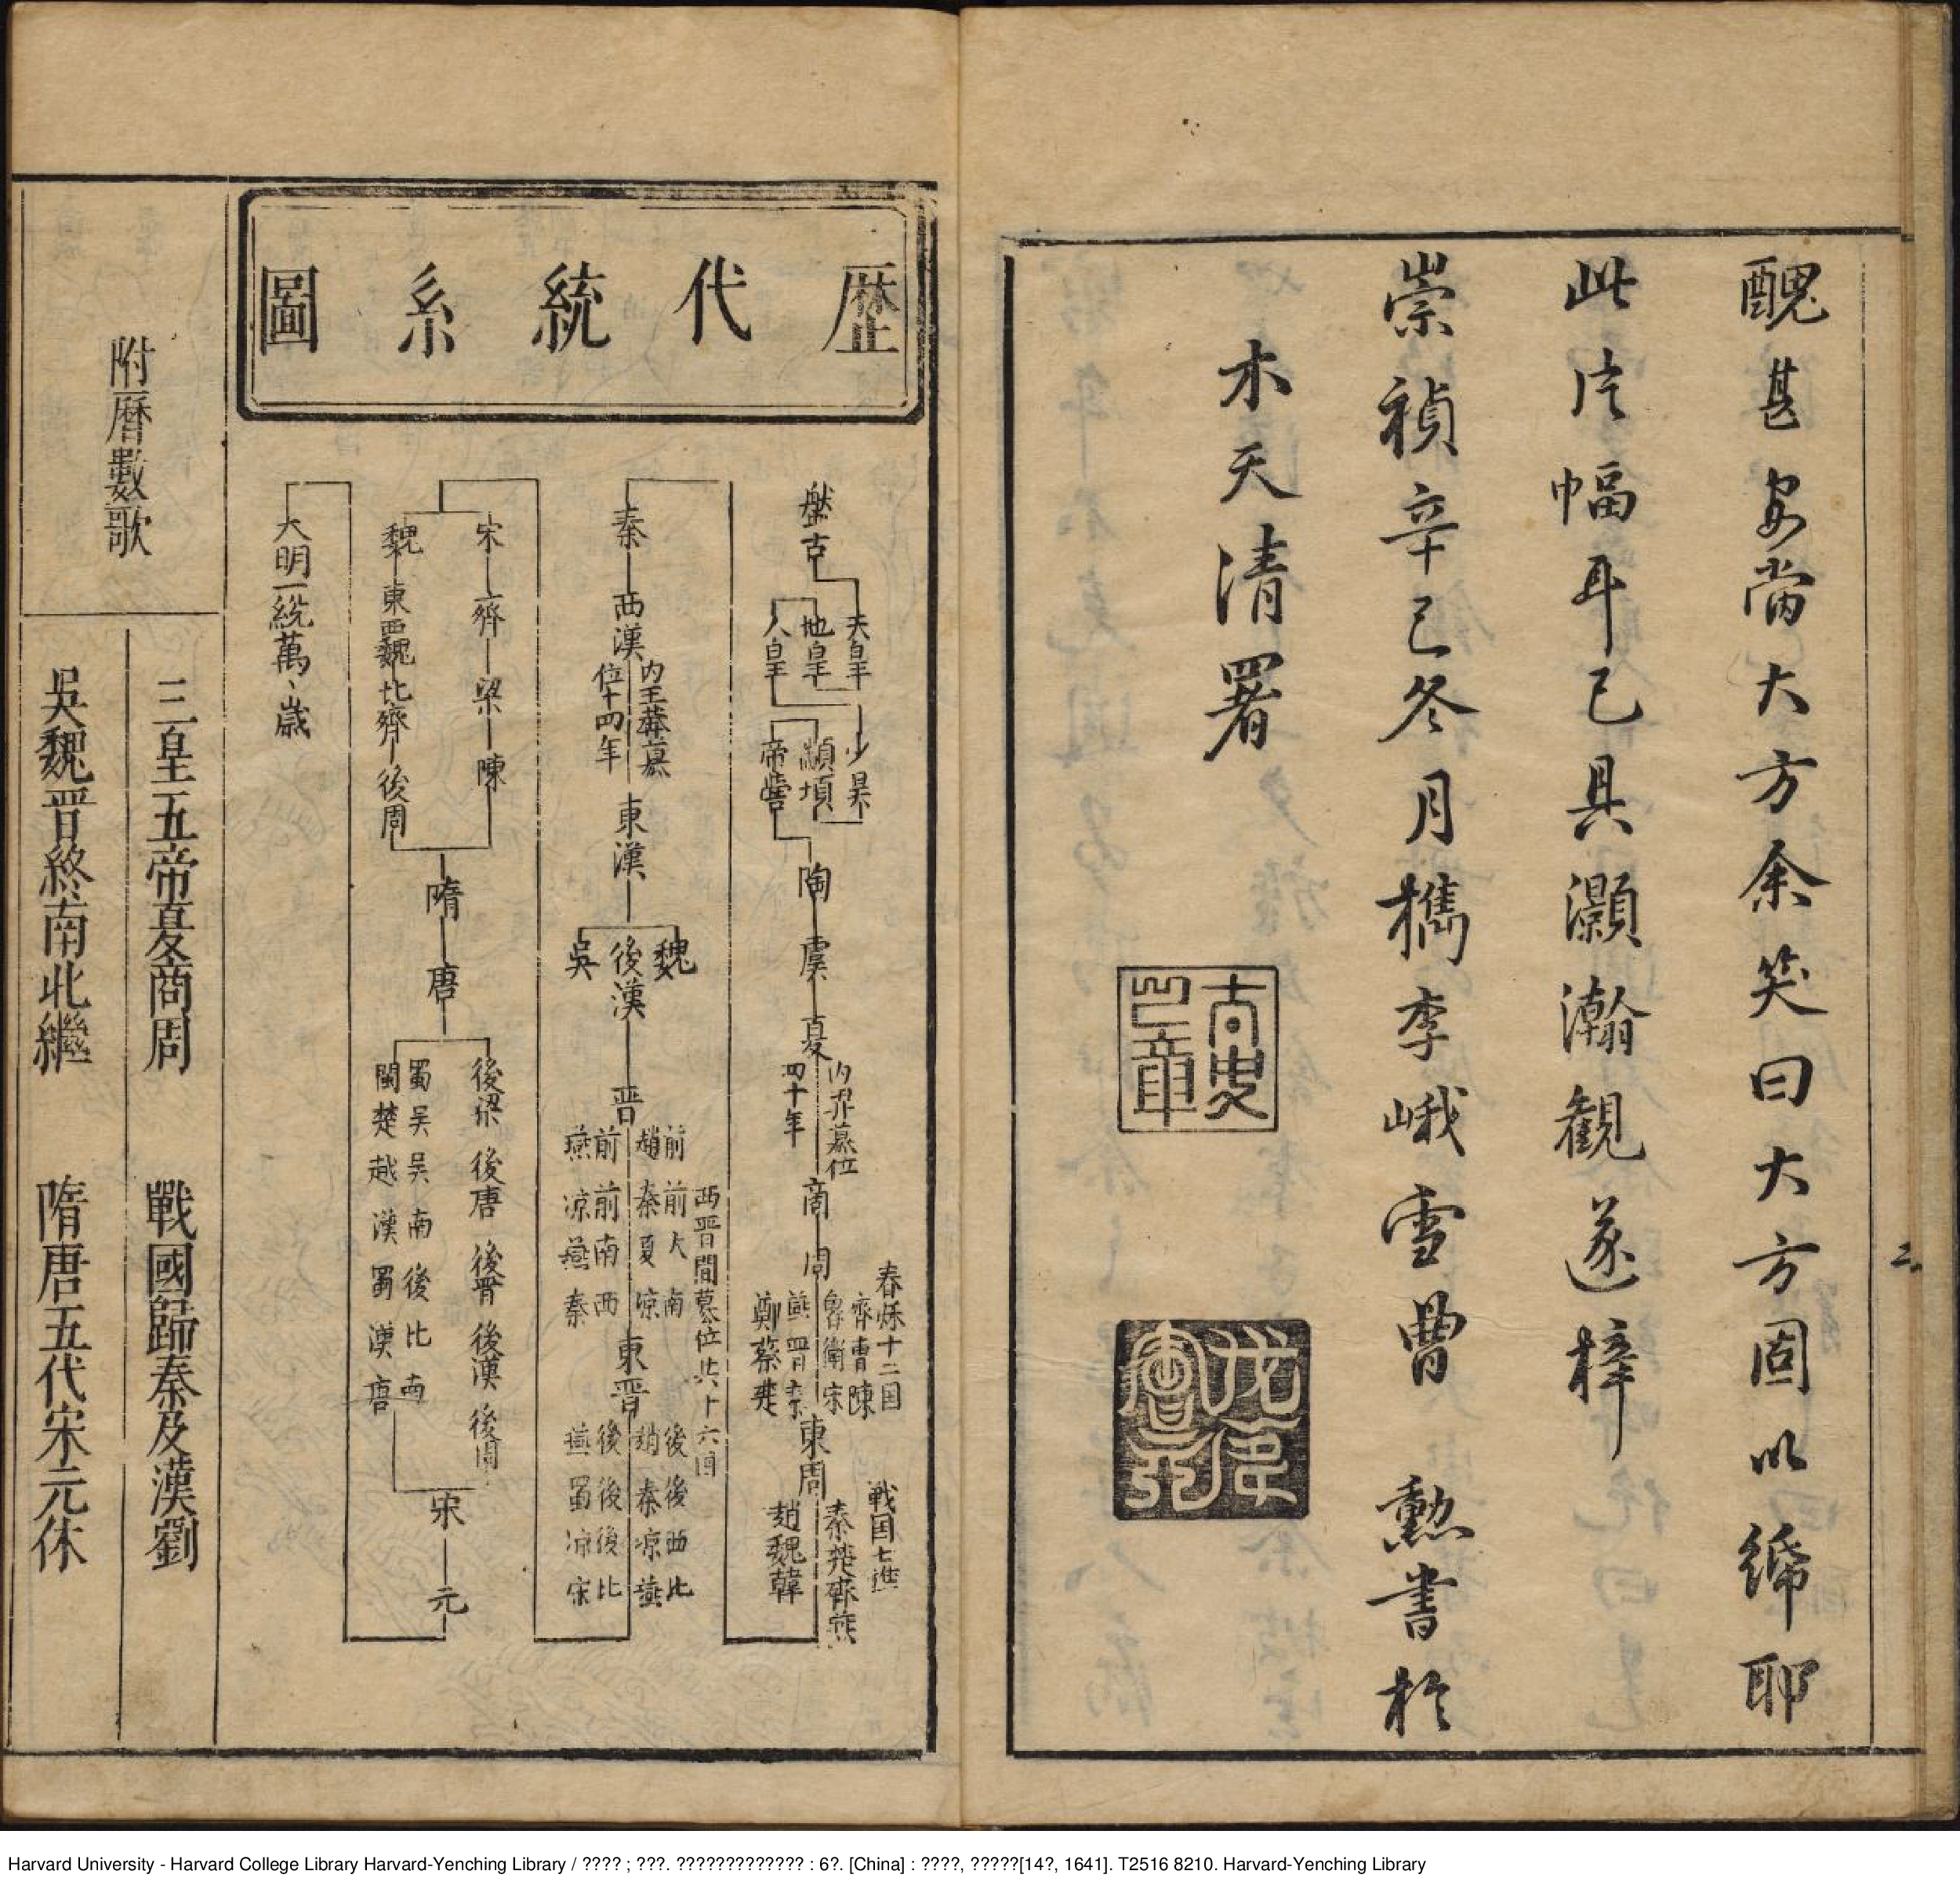 醜甚安當大方余笑曰大方固以締耶
此片幅耳已具灝瀚觀遂梓
崇禎辛已冬月檇李峨雪曹勲書於
木天清署
太史之章
二
歷代統系圖
盤古
天皇
地皇
人皇
少昊
顓頊
帝嚳
陶
虞
夏
内羿簒位
四十年
商
周
春秋十二国
齊曹陳
魯衛宋
燕晋秦
鄭蔡楚
東周
戦国七雄
秦楚齊燕
趙魏韓
秦
西漢
内王莽簒
位十四年
東漢
魏
後漢
吳
晋
西晋間簒位共十六国
前趙 前秦 大夏 南凉
前燕 前凉 南燕 西秦
東晋
後趙 後秦 西凉 北燕
後燕 後蜀 後凉 北宋
宋
齊
梁
陳
魏
東西魏
北齊
後周
隋
唐
後梁
後唐
後晋
後漢
後周
蜀吴吴南後北南
閩楚越漢蜀漢唐
宋
元
大明一統萬〻歲
附曆數歌
三皇五帝夏商周
戰國歸秦及漢劉
吳魏晋終南北繼
隋唐五代宋元休
Harvard University - Harvard College Library Harvard-Yenching Library / ???? ; ???. ????????????? : 6?. [China] : ????, ?????[14?, 1641]. T2516 8210. Harvard-Yenching Library